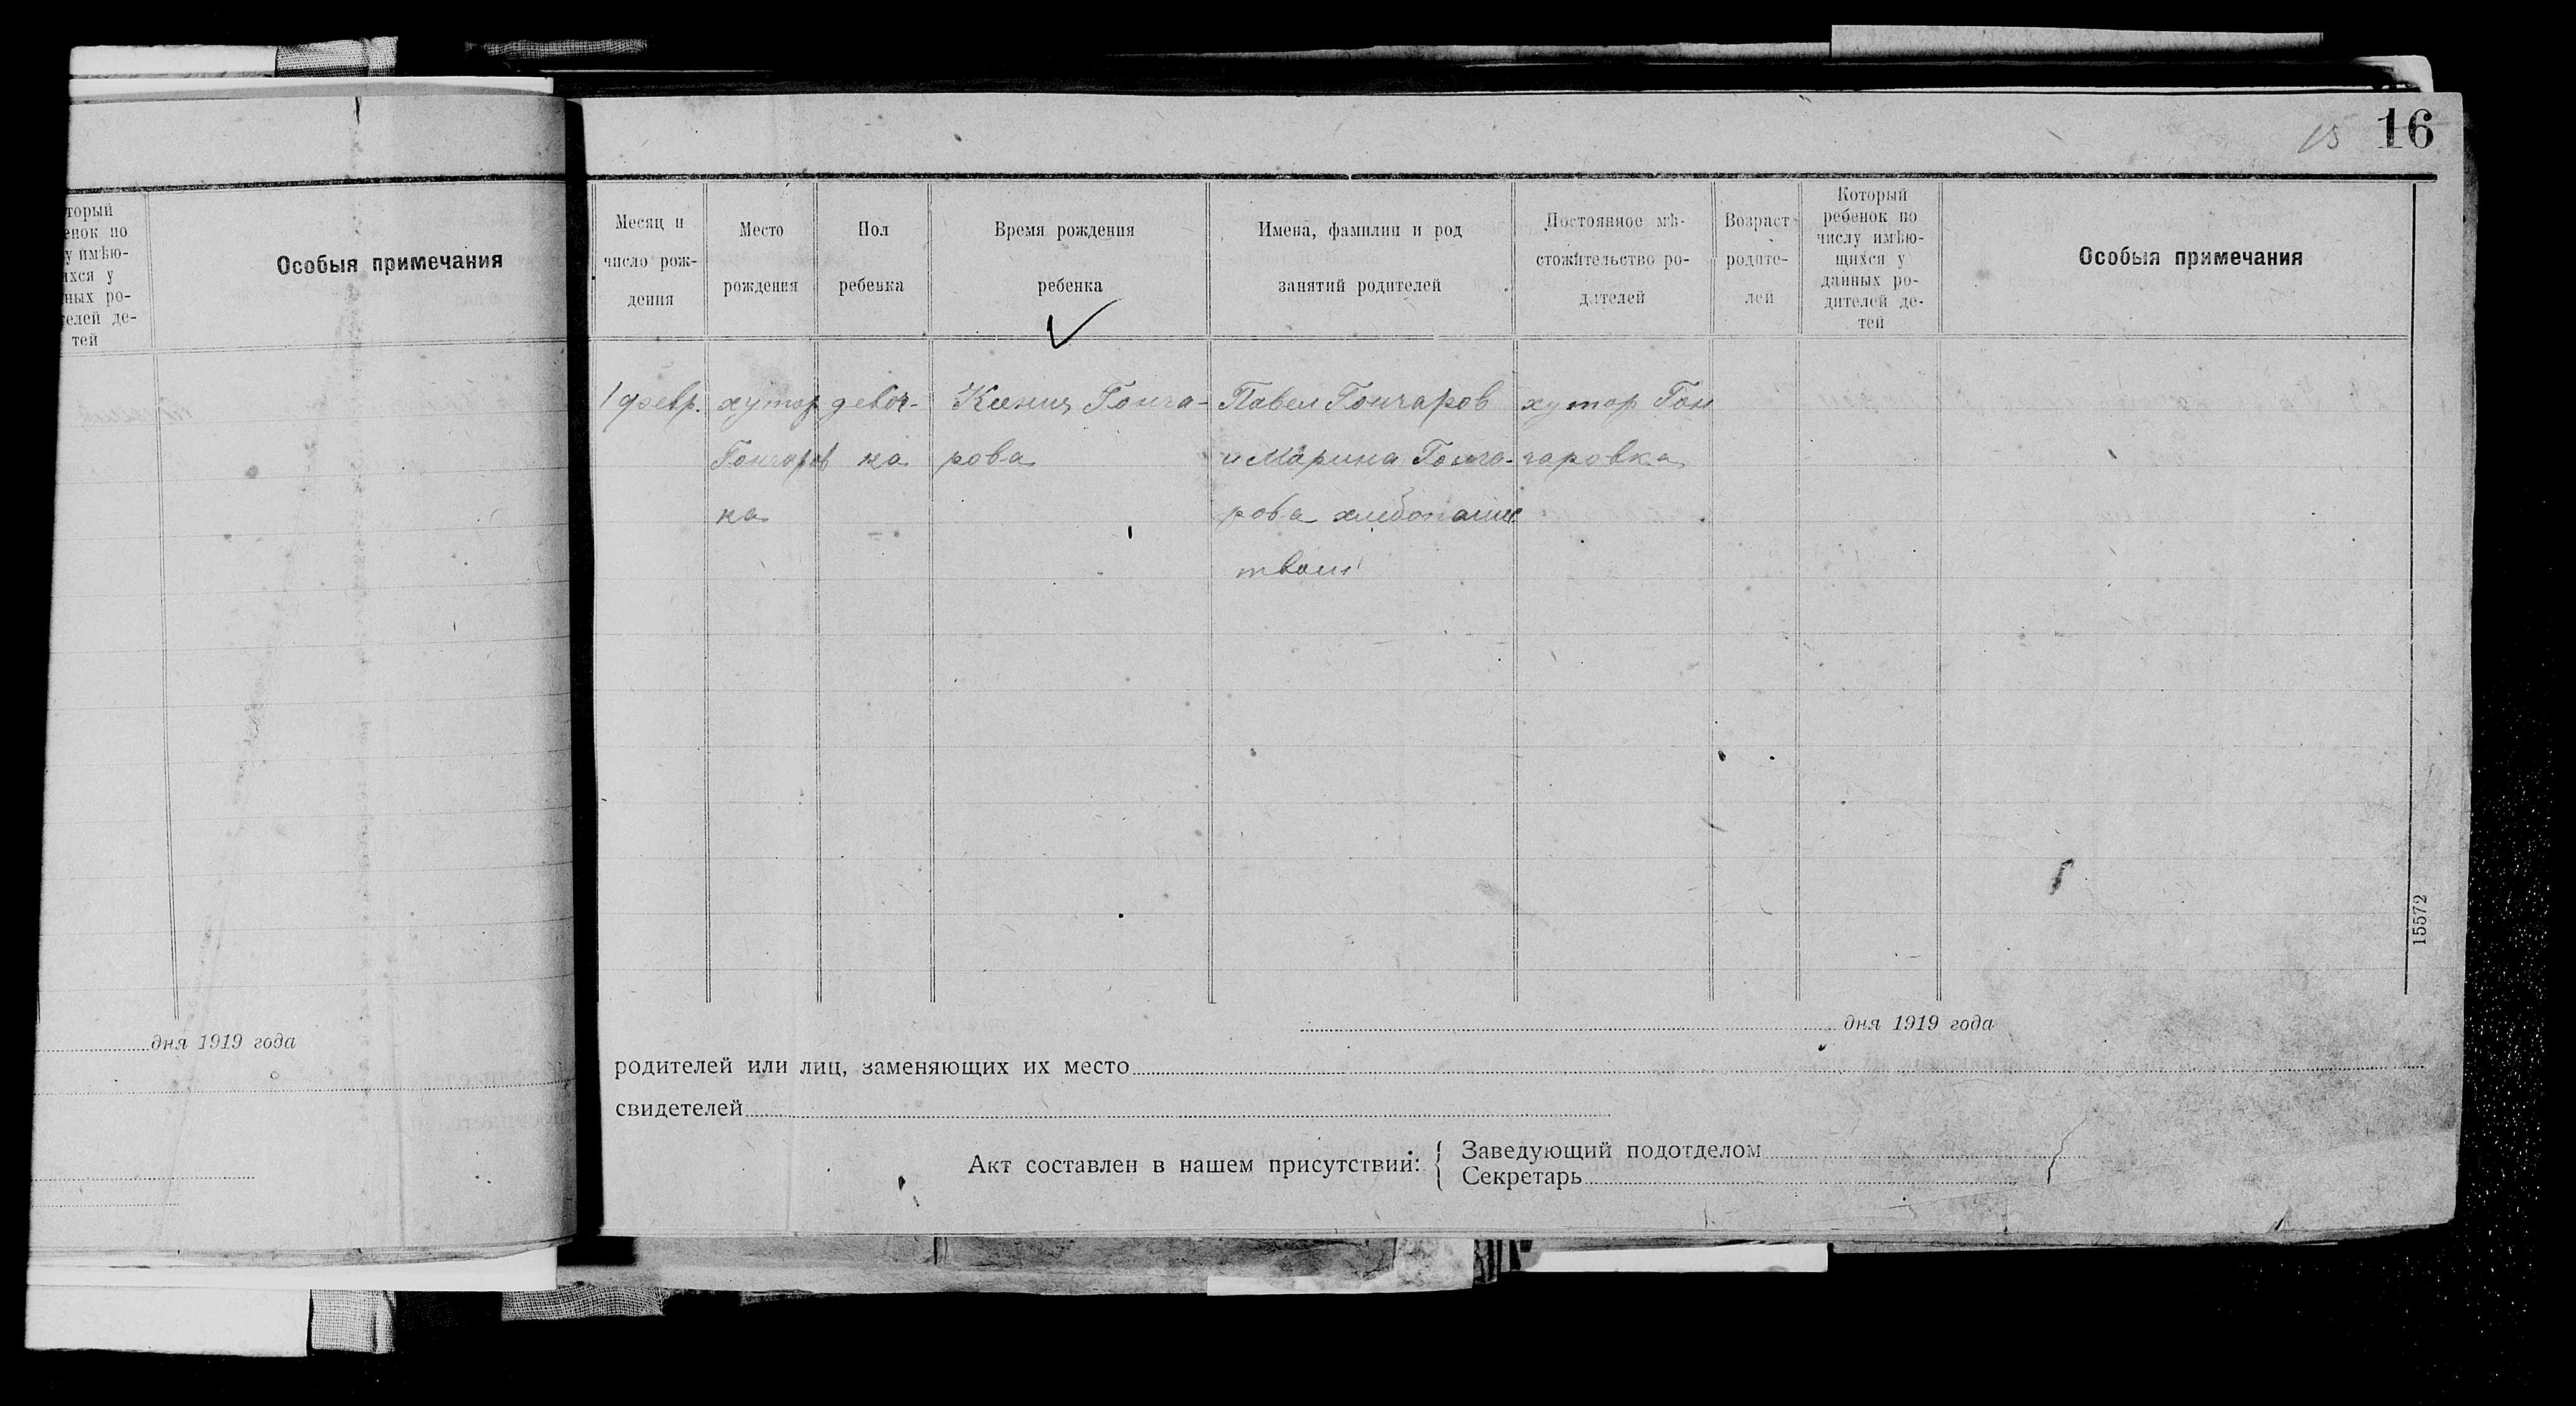 торый
енок по
у имѣю-
ихся у
ных ро-
телей де-
тей
Особыя примечания
дня 1919 года
15 16
Месяц и
число рож-
дения
Место
рождения
Пол
ребенка
Время рождения
ребенка
Имена, фамилии и род
занятий родителей
Постоянное мѣ-
стожительство ро-
дителей
Возраст
родите-
лей
Который
ребенок по
числу имѣю-
щихся у
данных ро-
дителей де-
тей
Особыя примечания
1 февр.
хутор
Гончаров
ка
девоч-
ка
Ксения Гонча-
рова
Павел Гончаров
и Марина Гонча-
рова хлебопашес
твом
хутор Гон
чаровка
15572
дня 1919 года
родителей или лиц, заменяющих их место
свидетелей
Акт составлен в нашем присутствии:
Заведующий подотделом
Секретарь